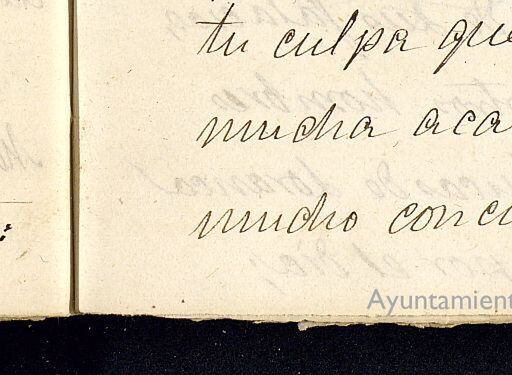 tu culpa que
mucha aca
mucho conci
Ayuntamient